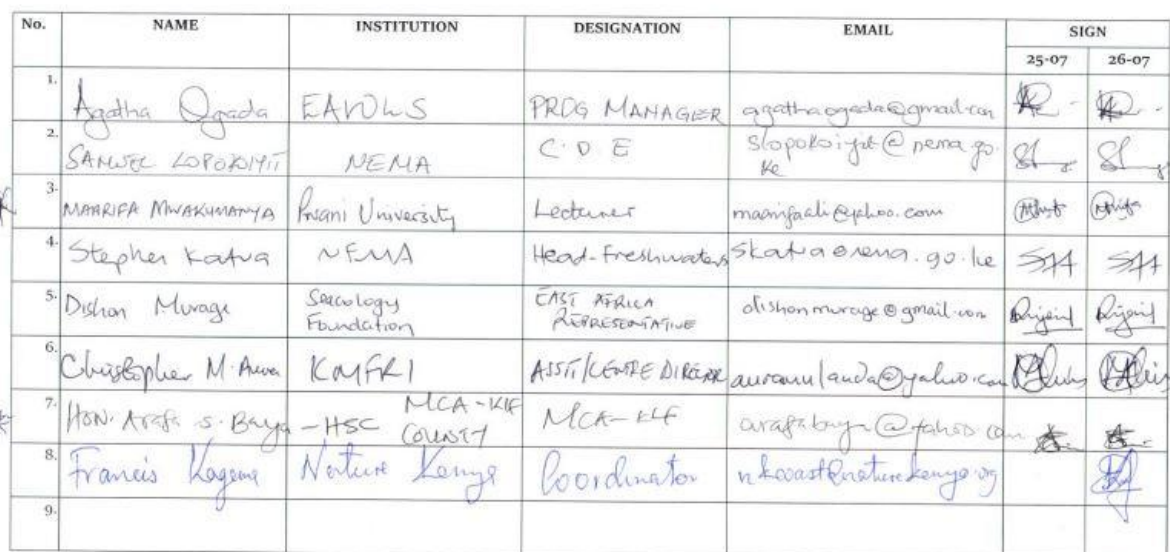 No. NAME INSTITUTION DESIGNATION EMAIL SIGN
25-07 26-07
1. Agatha Ogada EAWLS PROG MANAGER agathaogada@gmail.com
2. SAMUEL LOPOKOIYIT NEMA C.D.E slopokoiyit@nema.go.
ke
3. MAARIFA MWAKUMANYA Pwani University Lecturer maarifaali@yahoo.com
4. Stephen Katua NEMA Head-Freshwaters skatua@nema.go.ke
5. Dishon Murage Seacology EAST AFRICA dishonmurage@gmail.com
Foundation REPRESENTATIVE
6. Christopher M. Aura KMFRI ASST/CENTRE DIRECTOR auramulanda@yahoo.com
7. HON. Arafa S. Baya -HSC MCA-KLF MCA-KLF arafabaya@yahoo.com
COUNTY
8. Francis Kagema Nature Kenya Coordinator nkcoast@naturekenya.org
9.